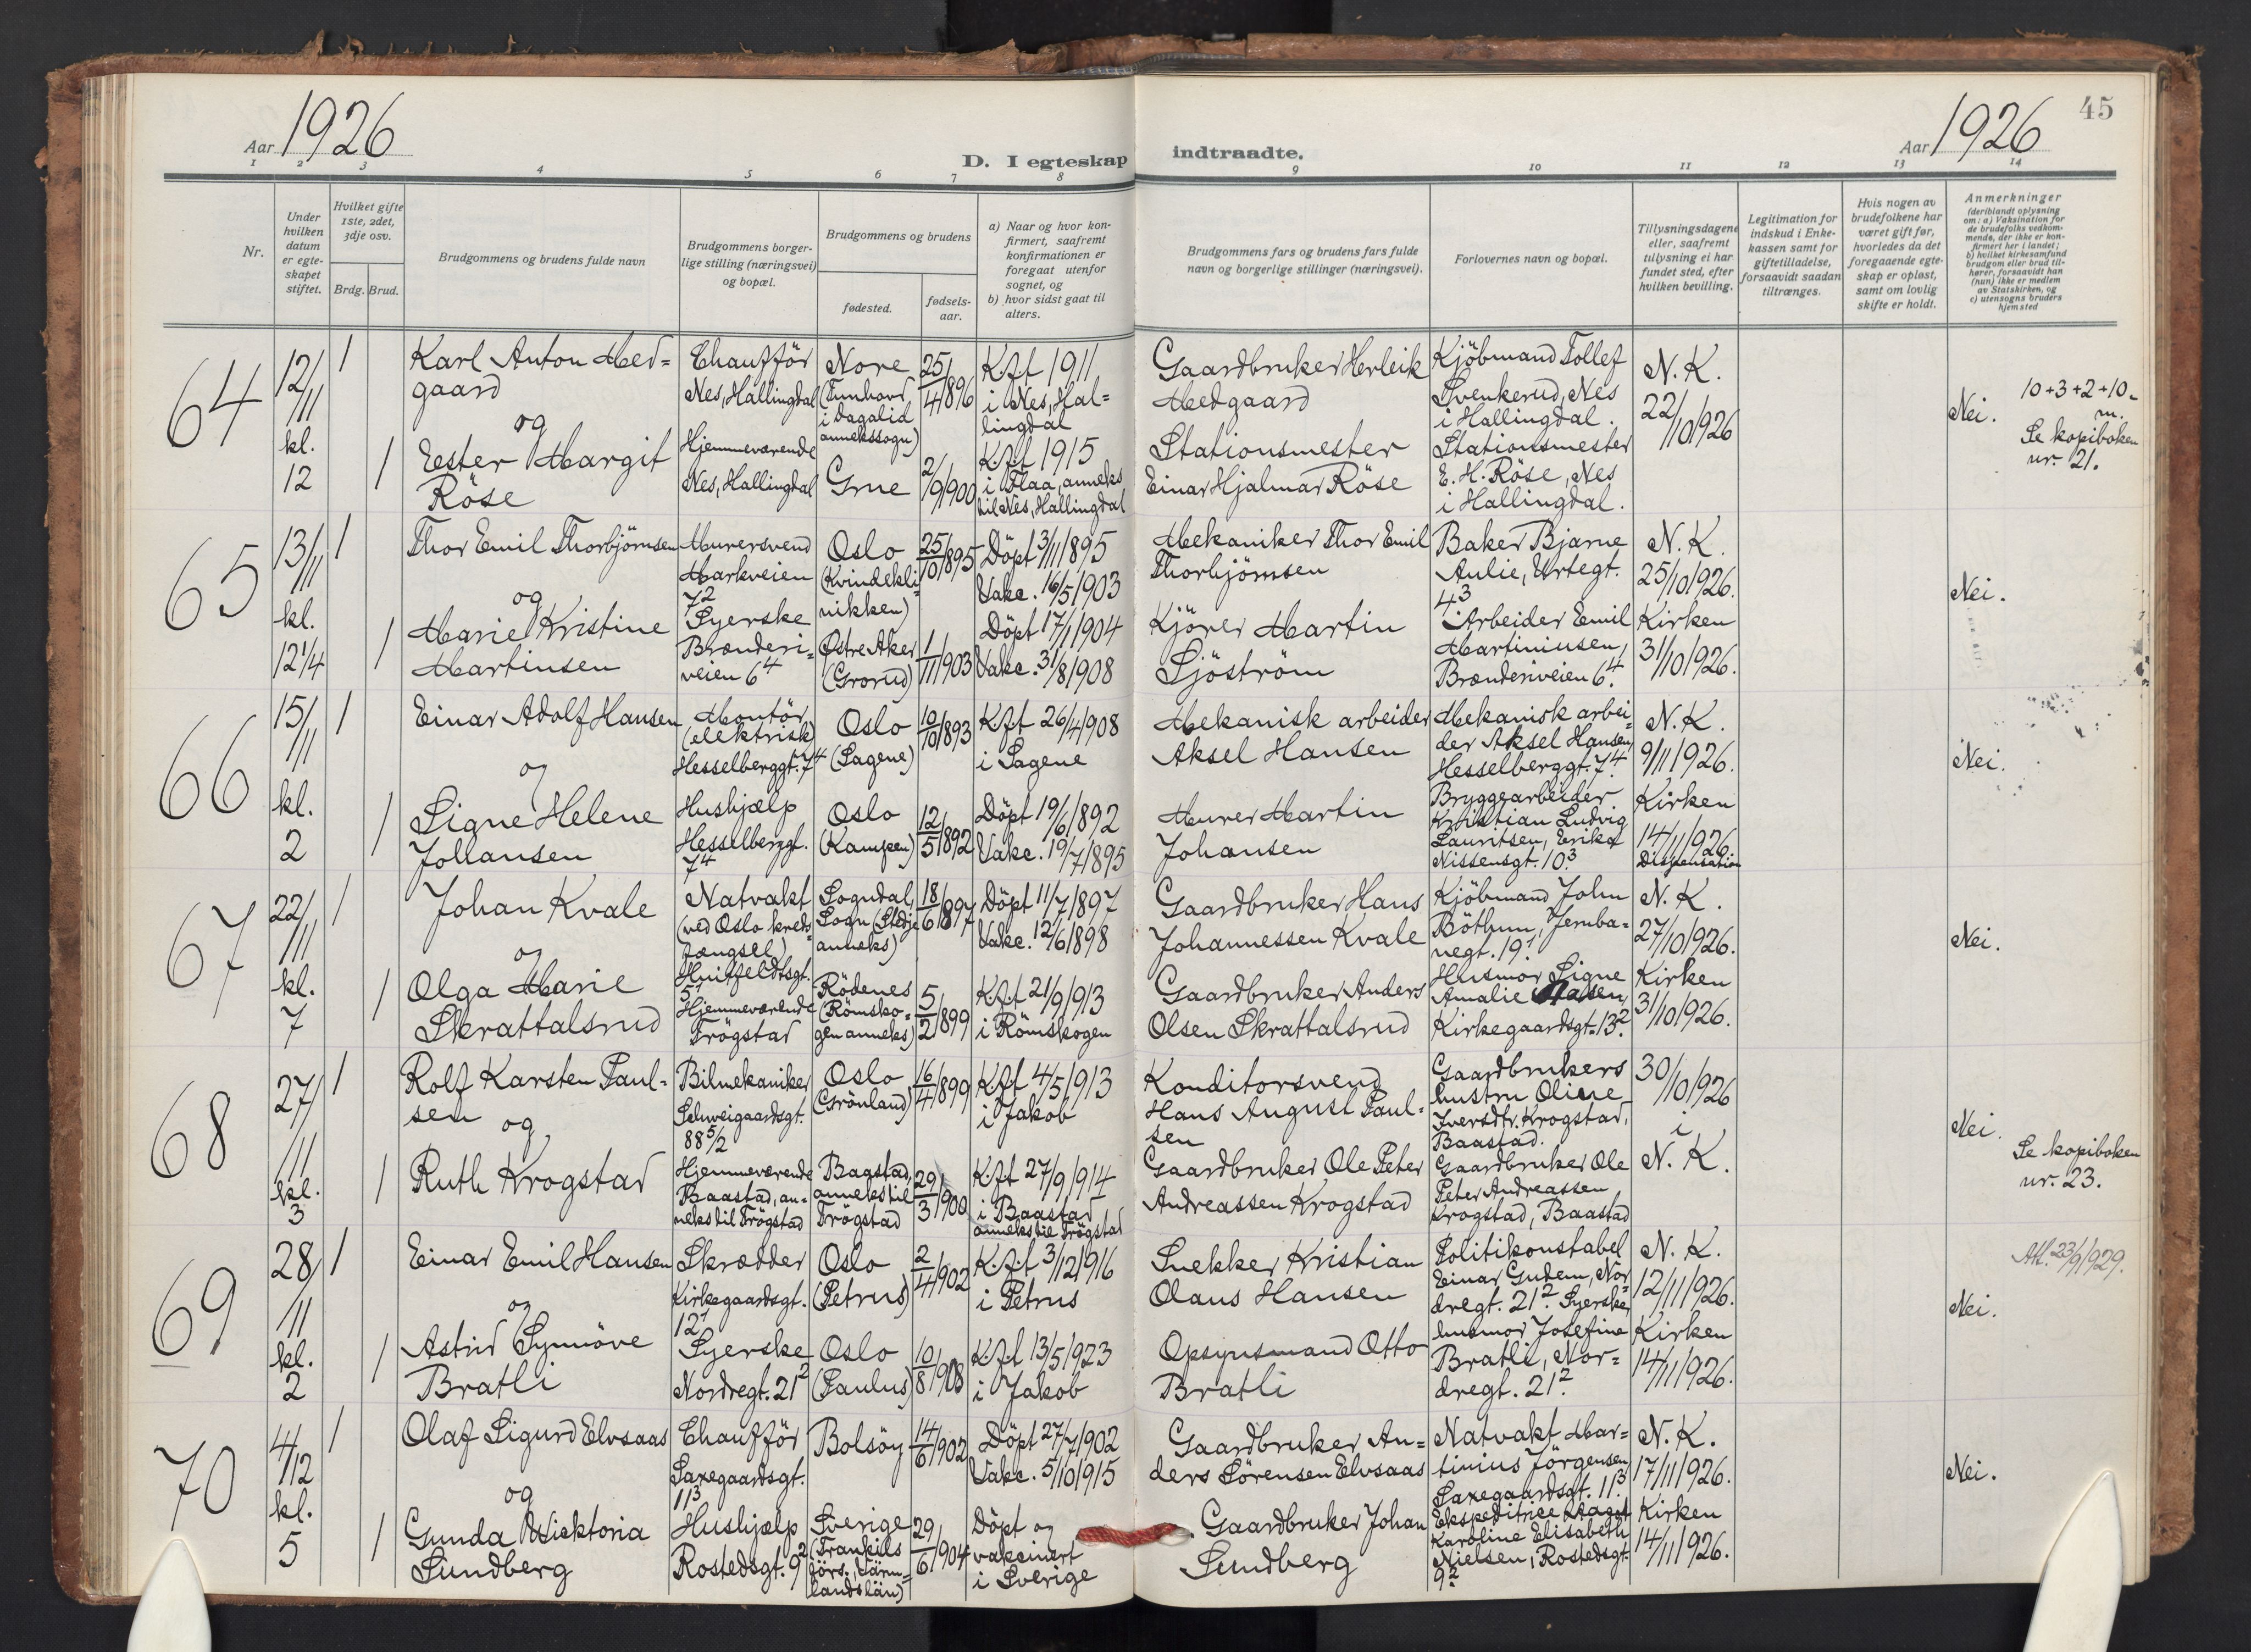 45
Aar 1926
D. I egteskap indtraadte.
Aar 1926
1 2 3 4 5 6 7 8 9 10 11 12 13 14
Nr.
Under hvilken datum er egteskapet stiftet.
Hvilket gifte 1ste, 2det, 3dje osv.
Brdg. Brud.
Brudgommens og brudens fulde navn
Brudgommens borgerlige stilling (næringsvei) og bopæl.
Brudgommens og brudens
fødested.
fødselsaar.
a) Naar og hvor konfirmert, saafremt konfirmationen er foregaat utenfor sognet, og
b) hvor sidst gaat til alters.
Brudgommens fars og brudens fars fulde navn og borgerlige stillinger (næringsvei).
Forlovernes navn og bopæl.
Tillysningsdagene eller, saafremt tillysning ei har fundet sted, efter hvilken bevilling.
Legitimation for indskud i Enkekassen samt for giftetilladelse, forsaavidt saadan tiltrænges.
Hvis nogen av brudefolkene har været gift før, hvorledes da det foregaaende egteskap er opløst, samt om lovlig skifte er holdt.
Anmerkninger
(deriblandt oplysning om: a) Vaksination for de brudefolks vedkommende, der ikke er konfirmert her i landet; b) hvilket kirkesamfund brudgom eller brud tilhører, forsaavidt han (hun) ikke er medlem av Statskirken, og c) utensogns bruders hjemsted
64
12/11 kl. 12
1
Karl Anton Medgaard
og
Chaufför
Nes, Hallingdal
Nore (Tunhovd, i Dagalid annekssogn)
25/4 1896
Kft 1911 i Nes, Hallingdal
Gaardbruker Herleik Medgaard
Kjöbmand Tollef Svenkerud, Nes i Hallingdal.
N. K. 22/10 1926
Nei.
10+3+2+10
Se kopiboken nr. 21.
1
Ester Margit Röse
Hjemmeværende
Nes, Hallingdal
Grue
2/9 1900
Kft 1915 i Flaa, anneks til Nes, Hallingdal
Stationsmester Einar Hjalmar Röse
Stationsmester E. H. Röse, Nes i Hallingdal.
65
13/11 kl. 12 1/4
1
Thor Emil Thorbjörnsen
og
Murersvend
Markveien 7²
Oslo (Kvindeklinikken)
25/10 1895
Döpt 3/11 1895
Vakc. 16/5 1903
Mekaniker Thor Emil Thorbjörnsen
Baker Bjarne Aulie, Urtegt. 4³
N. K. 25/10 1926.
Nei.
1
Marie Kristine Martinsen
Syerske
Brænderiveien 6⁴
Østre Aker (Grorud)
1/11 1903
Döpt 17/1 1904
Vakc. 31/8 1908
Kjörer Martin Sjöström
Arbeider Emil Martiniusen, Brænderiveien 6⁴.
Kirken 31/10 1926.
66
15/11 kl. 2
1
Einar Adolf Hansen
og
Montör (elektrisk)
Hesselberggt. 7⁴
Oslo (Sagene)
10/10 1893
Kft 26/4 1908 i Sagene
Mekanisk arbeider Aksel Hansen
Mekanisk arbeider Aksel Hansen, Hesselberggt. 7⁴.
N. K. 9/11 1926.
Nei.
1
Signe Helene Johansen
Hushjælp
Hesselberggt. 7⁴
Oslo (Kampen)
12/5 1892
Döpt 19/6 1892
Vakc. 19/7 1895
Murer Martin Johansen
Bryggearbeider Kristian Ludvig Lauritsen, Erika Nissensgt. 10³
Kirken 14/11 1926. Dispensation
67
22/11 kl. 7
1
Johan Kvale
og
Natvakt (ved Oslo kredsfængsel)
Huitfeldtsgt. 5¹
Sogndal, Sogn (Stedje anneks)
18/6 1897
Döpt 11/7 1897
Vakc. 12/6 1898
Gaardbruker Hans Johannessen Kvale
Kjöbmand John Böthun, Jernbanegt. 19¹.
N. K. 27/10 1926.
Nei.
1
Olga Marie Skrattalsrud
Hjemmeværende
Trögstad
Rödenes (Römskogen anneks)
5/2 1899
Kft 21/9 1913 i Römskogen
Gaardbruker Anders Olsen Skrattalsrud
Husmor Signe Amalie Kirkegaardsgt. 13².
Kirken 31/10 1926.
68
27/11 kl. 3
1
Rolf Karsten Paulsen
og
Bilmekaniker
Schweigaardsgt. 88 5/2
Oslo (Grönland)
16/4 1899
Kft 4/5 1913 i Jakob
Konditorsvend Hans August Paulsen
Gaardbrukers hustru Oline Iversdtr. Krogstad, Baastad.
30/10 1926 i N. K.
Nei.
Se kopiboken nr. 23.
1
Ruth Krogstad
Hjemmeværende
Baastad, anneks til Trögstad
Baastad, anneks til Trögstad
29/3 1900
Kft 27/9 1914 i Baastad anneks til Trögstad
Gaardbruker Ole Peter Andreassen Krogstad
Gaardbruker Ole Peter Andreassen Krogstad, Baastad
69
28/11 kl. 2
1
Einar Emil Hansen
og
Skrædder
Kirkegaardsgt. 12¹
Oslo (Petrus)
2/4 1902
Kft 3/12 1916 i Petrus
Snekker Kristian Olaus Hansen
Politikonstabel Einar Gudem, Nordregt. 21².
N. K. 12/11 1926.
Nei.
Att. 23/9 1929.
1
Astrid Synnöve Bratli
Syerske
Nordregt. 21²
Oslo (Paulus)
10/8 1908
Kft 13/5 1923 i Jakob
Opsynsmand Otto Bratli
Syerske, husmor Josefine Bratli, Nordregt. 21².
Kirken 14/11 1926.
70
4/12 kl. 5
1
Olaf Sigurd Elvsaas
og
Chaufför
Saxegaardsgt. 11³
Bolsöy
14/6 1902
Döpt 27/7 1902
Vakc. 5/10 1915
Gaardbruker Anders Sörensen Elvsaas
Natvakt Martinius Jörgensen, Saxegaardsgt. 11³.
N. K. 17/11 1926.
Nei.
1
Gunda Wicktoria Sundberg
Hushjælp
Rostedsgt. 9²
Sverige
29/6 1904
Döpt og vakcinert i Sverige
Gaardbruker Johan Sundberg
Ekspeditrice Karoline Elisabeth Nielsen, Rostedsgt. 9².
Kirken 14/11 1926.